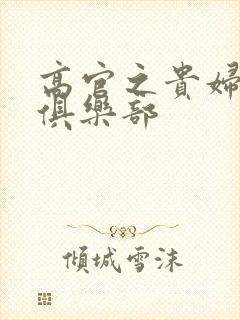 高官之貴婦
俱樂部
傾城雪沫